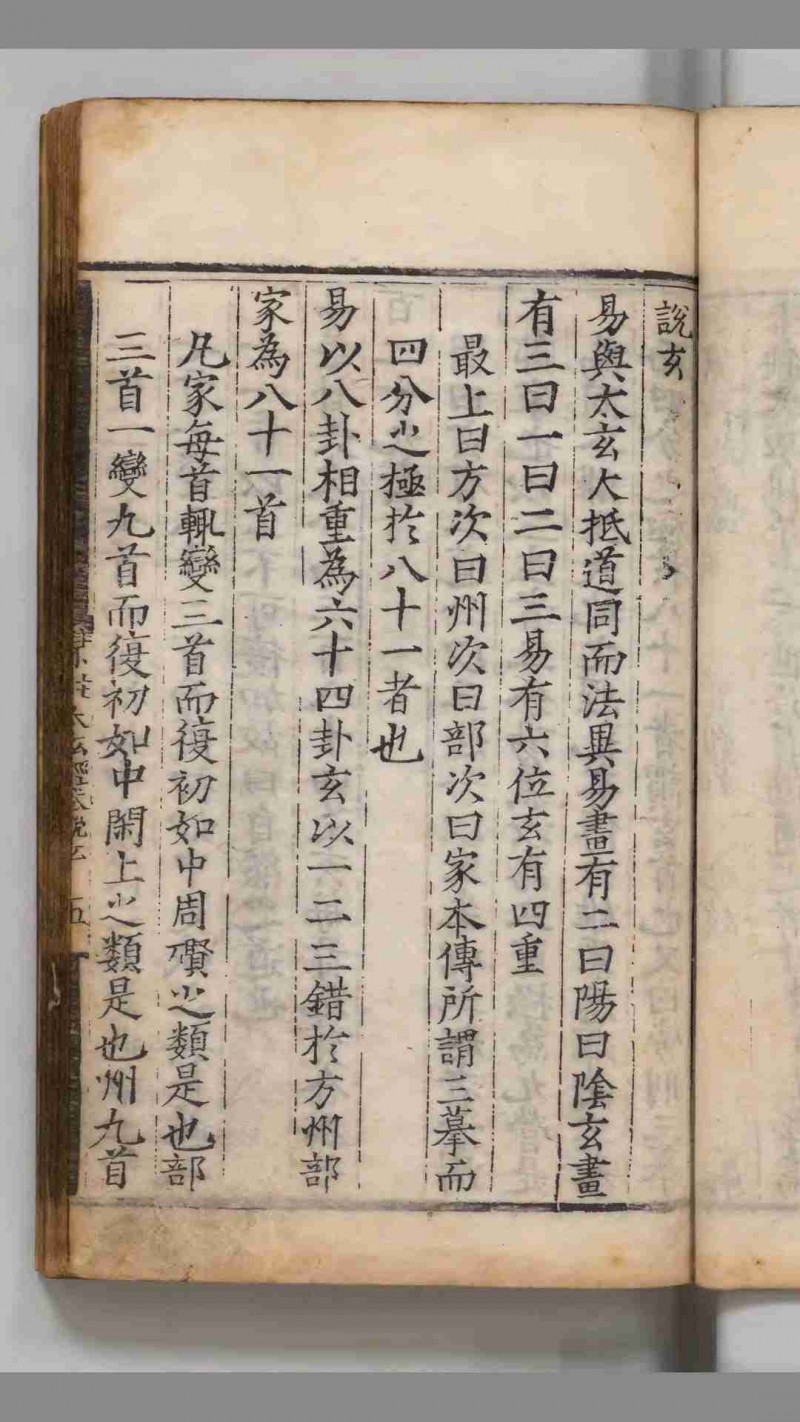 說玄
易與太玄大抵道同而法異易畫有二曰陽曰陰玄畫
有三曰一曰二曰三易有六位玄有四重
最上曰方次曰州次曰部次曰家本傳所謂三摹而
四分之極於八十一者也
易以八卦相重為六十四卦玄以一二三錯於方州部
家為八十一首
凡家每首輒變三首而復初如中周礥之類是也部
三首一變九首而復初如中閑上之類是也州九首
太玄經
說玄
五